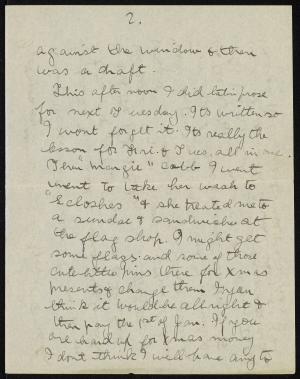 2.
against the window & there
was a draft.
This afternoon I did latin prose
for next Tuesday. Its written so
I wont forget it. Its really the
lesson for Fri. & Tues, all in one.
Then "Margie" Cobb & I went
went to take her wash to
" & she treated me to
a sundae & sandwiches at
the flag shop. I might get
some flags and some of those
cute little pins there for Xmas
presents & change them
think it would be all right &
then pay the 1st of Jan. If you
are hard up for Xmas money
I dont think I will have any to